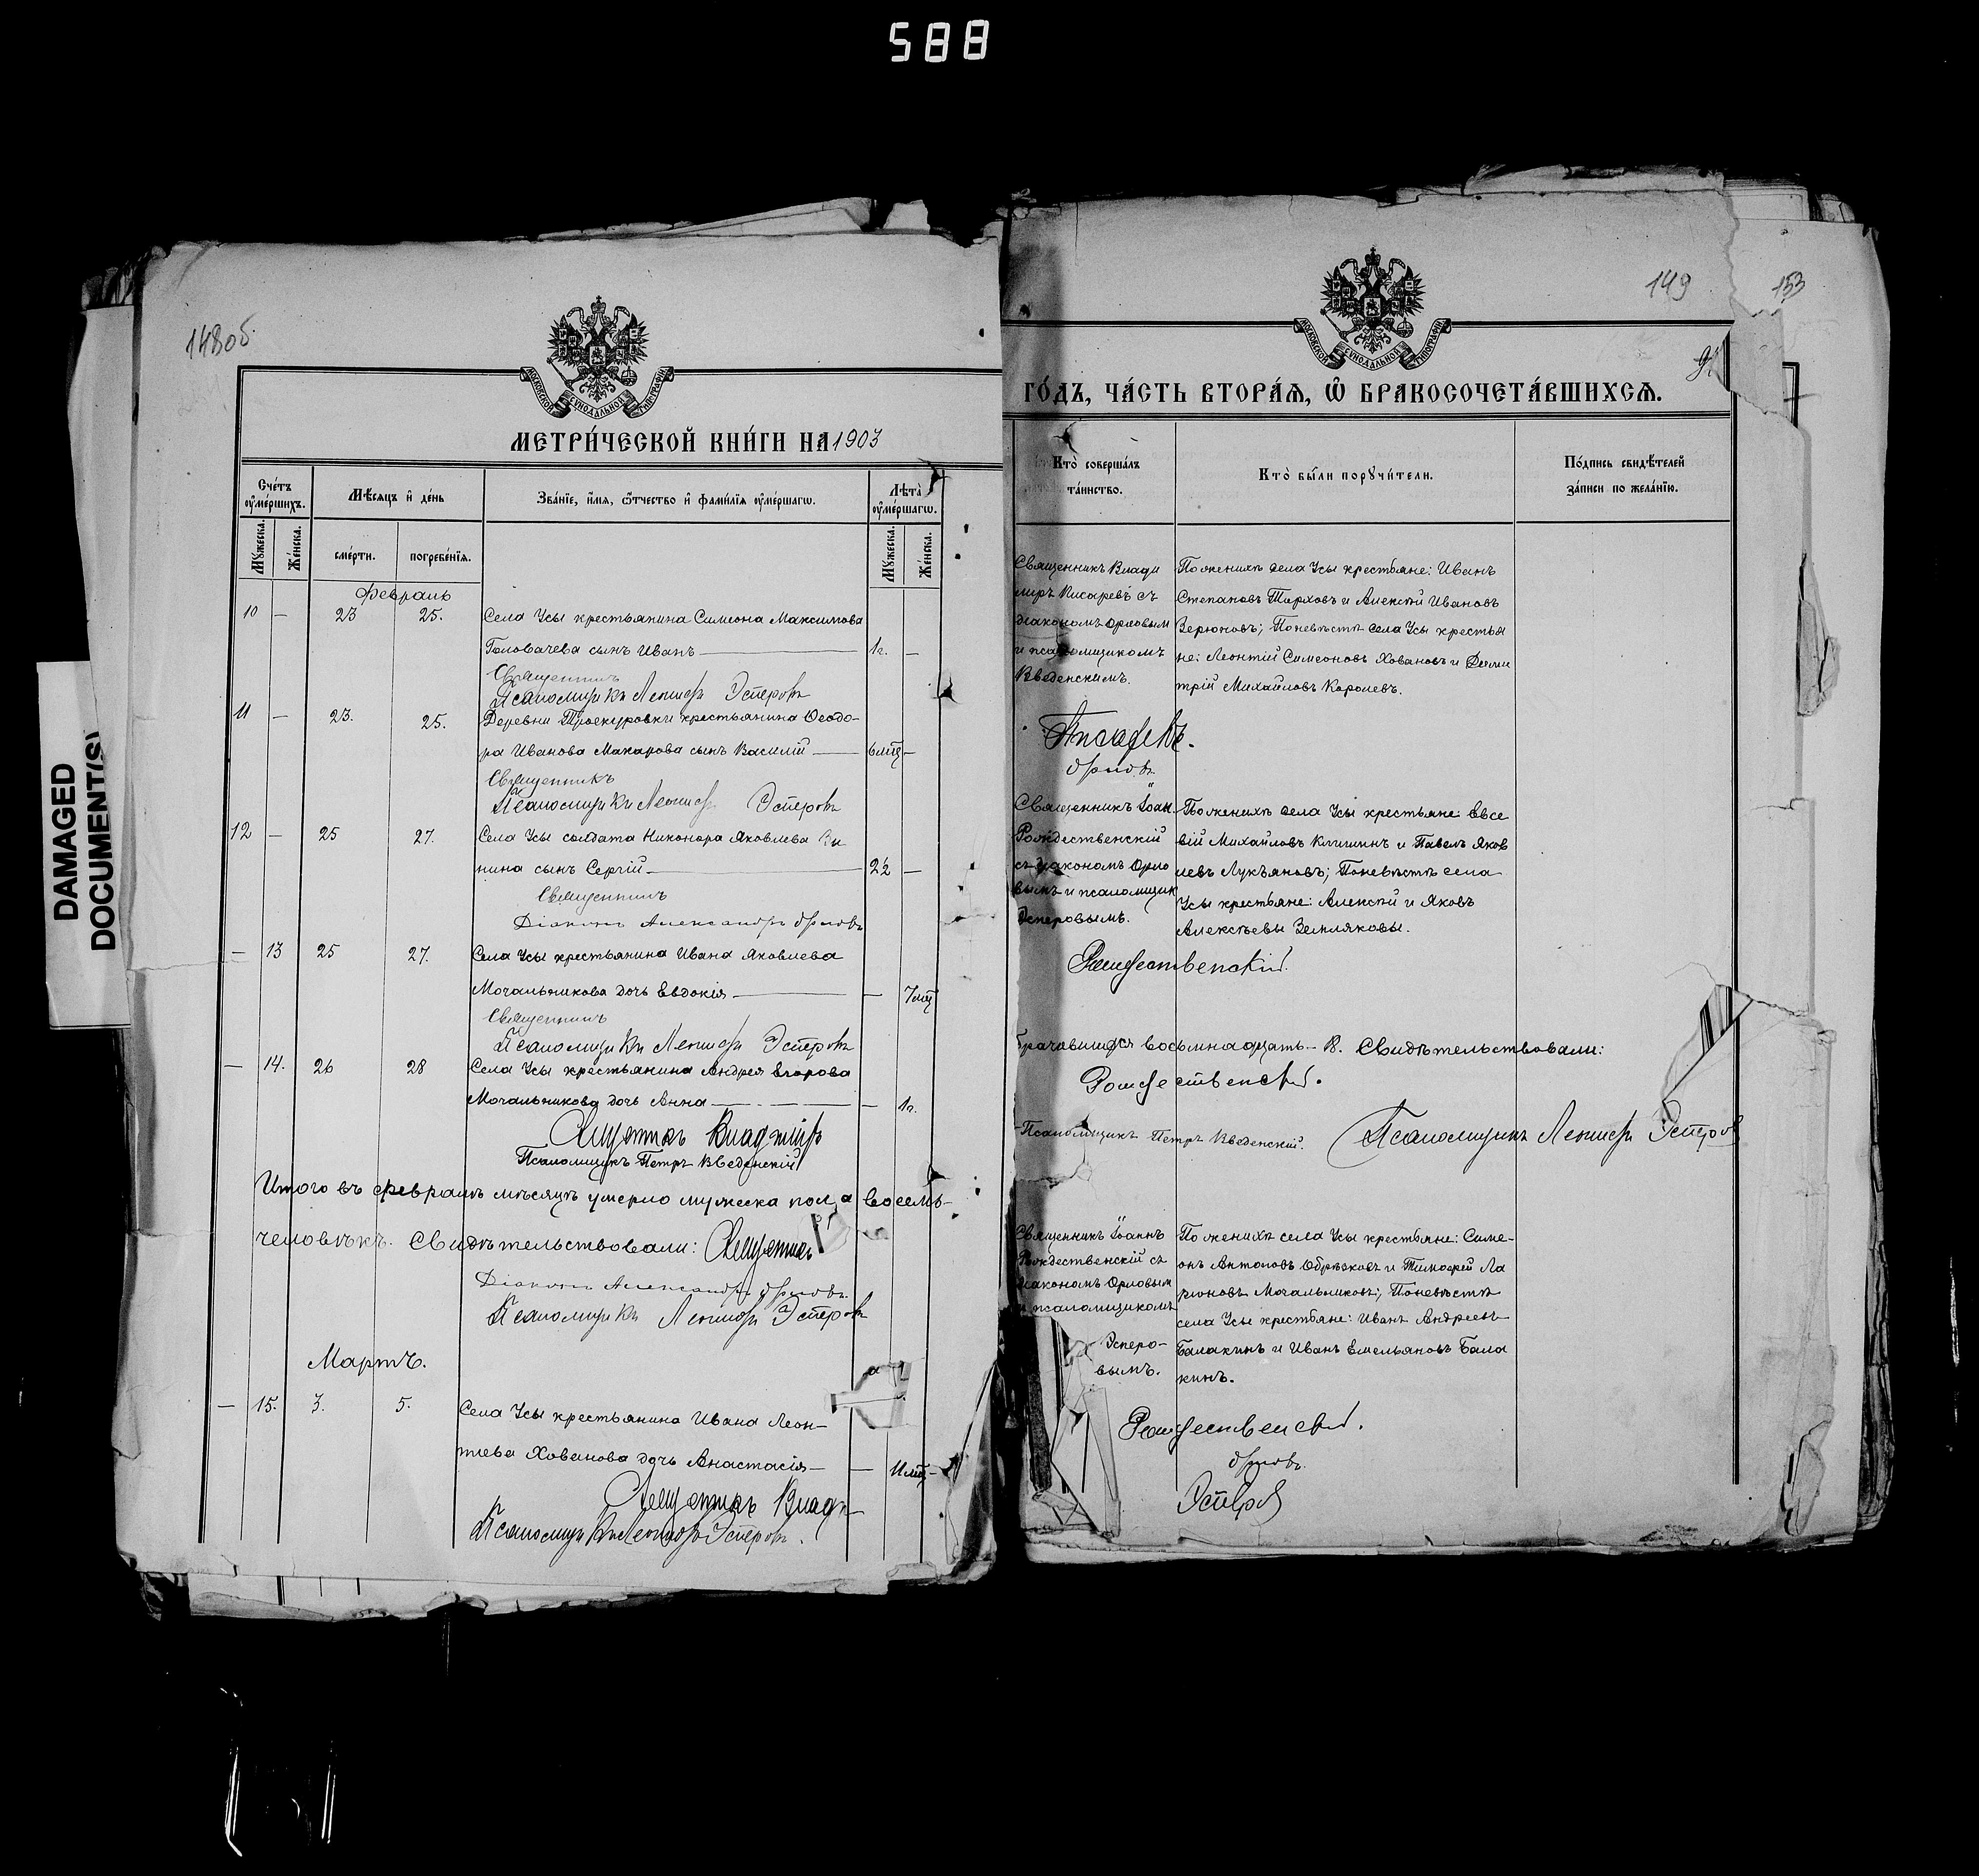 588
DAMAGED
DOCUMENT(S)
148об
МОСКОВСКОЙ СУНОДАЛЬНОЙ ТИПОГРАФІИ
МЕТРИ́ЧЕСКОЙ КНИ́ГИ НА 1903
Сче́тъ ᲂу҆ме́ршихъ.
Мѣ́сяцъ и҆ де́нь
Зва́нїе, и҆́мя, ѻ҆́тчество и҆ фами́лїя ᲂу҆ме́ршагѡ.
Лѣта̀ ᲂу҆ме́ршагѡ.
Мꙋ́жеска.
Же́нска.
сме́рти.
погребе́нїя.
Мꙋ́жеска.
Же́нска.
Февраль
10 — 23 25. Села Усы крестьянина Симеона Максимова
Головачева сынъ Иванъ — 1г. —
Священникъ
Псаломщикъ Леонидъ Эсперовъ
11 — 23. 25. Деревни Проскуровки крестьянина Ѳеодо-
ра Иванова Макарова сынъ Василій — 6 мц —
Священникъ
Псаломщикъ Леонидъ Эсперовъ
12 — 25 27. Села Усы солдата Никонора Яковлева
нина сынъ Сергій — 2½ —
Священникъ
Діаконъ Александръ Орловъ
— 13 25 27. Села Усы крестьянина Ивана Яковлева
Мочальникова дочь Евдокія — — 7 мц
Священникъ
Псаломщикъ Леонидъ Эсперовъ
— 14. 26 28 Села Усы крестьянина Андрея Егорова
Мочальникова дочь Анна — — 1г.
Священникъ Владиміръ
Псаломщикъ Петръ Введенскій
Итого въ февралѣ мѣсяцѣ умерло мужеска пола восемь-
человѣкъ. Свидѣтельствовали: Священникъ
Діаконъ Александръ Орловъ.
Псаломщикъ Леонидъ Эсперовъ
Мартъ.
— 15. 3. 5. Села Усы крестьянина Ивана Леон-
тьева Хованова дочь Анастасія — — 11 мц —
Священникъ Влади
Псаломщикъ Леонидъ Эсперовъ.
149
153
МОСКОВСКОЙ СУНОДАЛЬНОЙ ТИПОГРАФІИ
ГО́ДЪ, ЧА́СТЬ ВТОРА́Я, Ѽ БРАКОСОЧЕТА́ВШИХСЯ.
Кто̀ соверша́лъ
та́инство.
Кто̀ бы́ли порꙋчи́тели.
По́дпись свидѣ́телей
за́писи по жела́нїю.
Священникъ Влади
миръ Писаревъ съ
діакономъ Орловым
и псаломщикомъ
Введенскимъ.
По женихѣ села Усы крестьяне: Иванъ
Степановъ Тарховъ и Алексѣй Ивановъ
Зерюновъ; По невѣстѣ села Усы крестья
не: Леонтій Симеоновъ Ховановъ и Дими
трій Михайловъ Королевъ.
Писаревъ.
Орловъ.
Священникъ Іоан.
Рождественскій
съ діакономъ Орло
вымъ и псаломщик
Эсперовымъ.
По женихѣ села Усы крестьяне: Евсе
вій Михайловъ Климинъ и Павелъ Яков
левъ Лукъяновъ; По невѣстѣ села
Усы крестьяне: Алексѣй и Яковъ
Алексѣевы Земляковы.
Рождественскій.
брачавшихся восьмнадцать — 18. Свидѣтельствовали:
Рождественскій.
Псаломщикъ Петръ Введенскій. Псаломщикъ Леонидъ Эсперов
Священникъ Іоаннъ
Рождественскій съ
діакономъ Орловым
и псаломщикомъ
Эсперо-
вымъ.
По женихѣ села Усы крестьяне: Симе-
онъ Антоновъ Обрѣзковъ и Тимофей Ла
рионовъ Мочальниковъ; По невѣстѣ
села Усы крестьяне: Иванъ Андреевъ
Балакинъ и Иванъ Емельяновъ Бала
кинъ.
Рождественскій.
Орловъ.
Эсперов